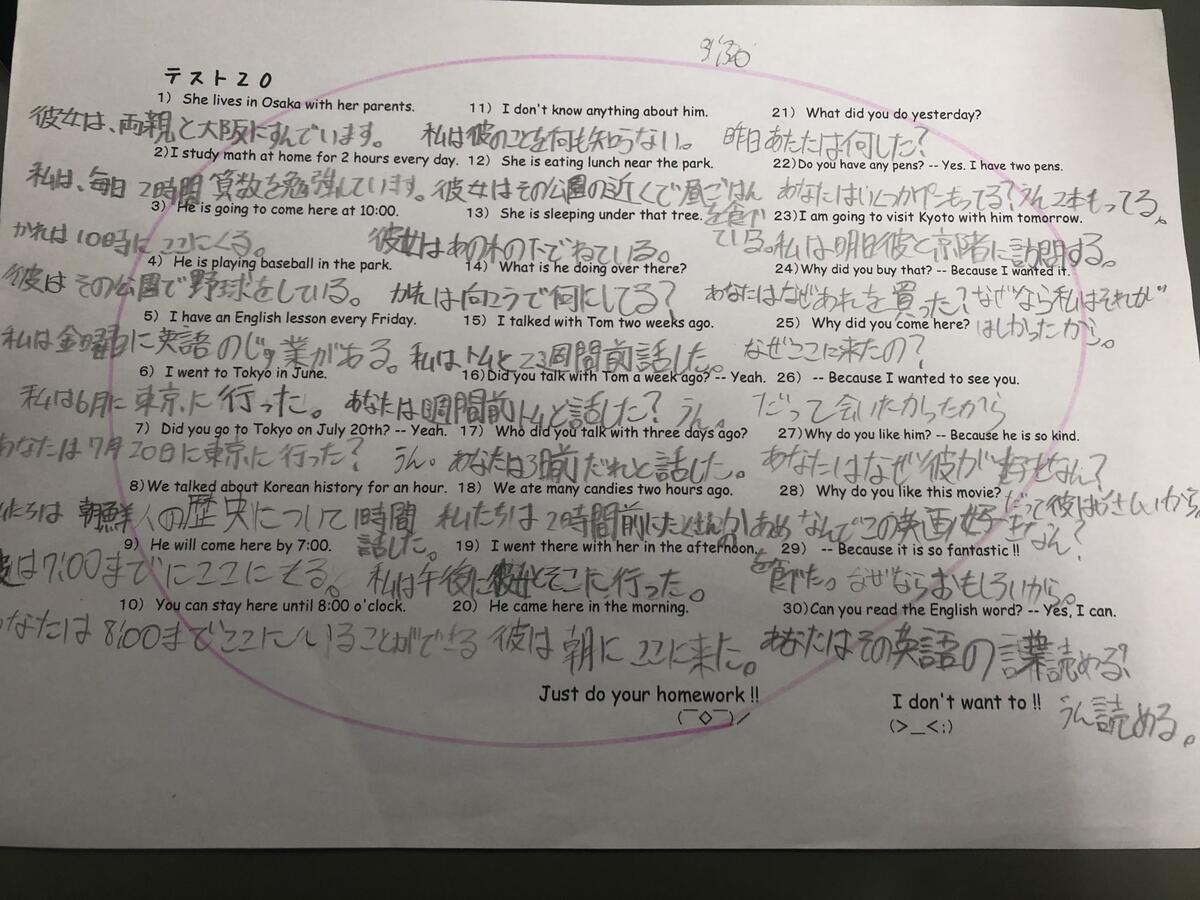 9:30
テスト20
1) She lives in Osaka with her parents.
彼女は、両親と大阪にすんでいます。
2)I study math at home for 2 hours every day.
私は、毎日2時間算数を勉強しています。
3) He is going to come here at 10:00.
かれは10時にここにくる。
4) He is playing baseball in the park.
彼はその公園で野球をしている。
5) I have an English lesson every Friday.
私は金曜日に英語のじゅ業がある。
6) I went to Tokyo in June.
私は6月に東京に行った。
7) Did you go to Tokyo on July 20th? -- Yeah.
あなたは7月20日に東京に行った? うん。
8)We talked about Korean history for an hour.
私たちは朝鮮人の歴史について1時間
話した。
9) He will come here by 7:00.
彼は7:00までにここにくる。
10) You can stay here until 8:00 o'clock.
なたは8:00までここにいることができる
11) I don't know anything about him.
私は彼のことを何も知らない。
12) She is eating lunch near the park.
彼女はその公園の近くで昼ごはん
を食べ
ている。
13) She is sleeping under that tree.
彼女はあの木の下でねている。
14) What is he doing over there?
かれは向こうで何にしてる?
15) I talked with Tom two weeks ago.
私はトムと2週間前話した。
16)Did you talk with Tom a week ago? -- Yeah.
あなたは1週間前トムと話した? うん。
17) Who did you talk with three days ago?
あなたは3日前だれと話した。
18) We ate many candies two hours ago.
私たちは2時間前にたくさんのあめ
を食べた。
19) I went there with her in the afternoon.
私は午後に彼女とそこに行った。
20) He came here in the morning.
彼は朝にここに来た。
21) What did you do yesterday?
昨日あたたは何した?
22)Do you have any pens? -- Yes. I have two pens.
あなたはいくつかペンもってる? うん2本もってる。
23)I am going to visit Kyoto with him tomorrow.
私は明日彼と京都に訪問する。
24)Why did you buy that? -- Because I wanted it.
あなたはなぜあれを買った? なぜなら私はそれが
ほしかったから。
25) Why did you come here?
なぜここに来たの?
26) -- Because I wanted to see you.
だって会いたかったから
27)Why do you like him? -- Because he is so kind.
あなたはなぜ彼が好きなん?
だって彼はやさしいから。
28) Why do you like this movie?
なんでこの映画好きなん?
29) -- Because it is so fantastic !!
なぜならおもしろいから。
30)Can you read the English word? -- Yes, I can.
あなたはその英語の言葉読める?
うん読める。
Just do your homework !!
(￣◇￣)／
I don't want to !!
(>＿<;)